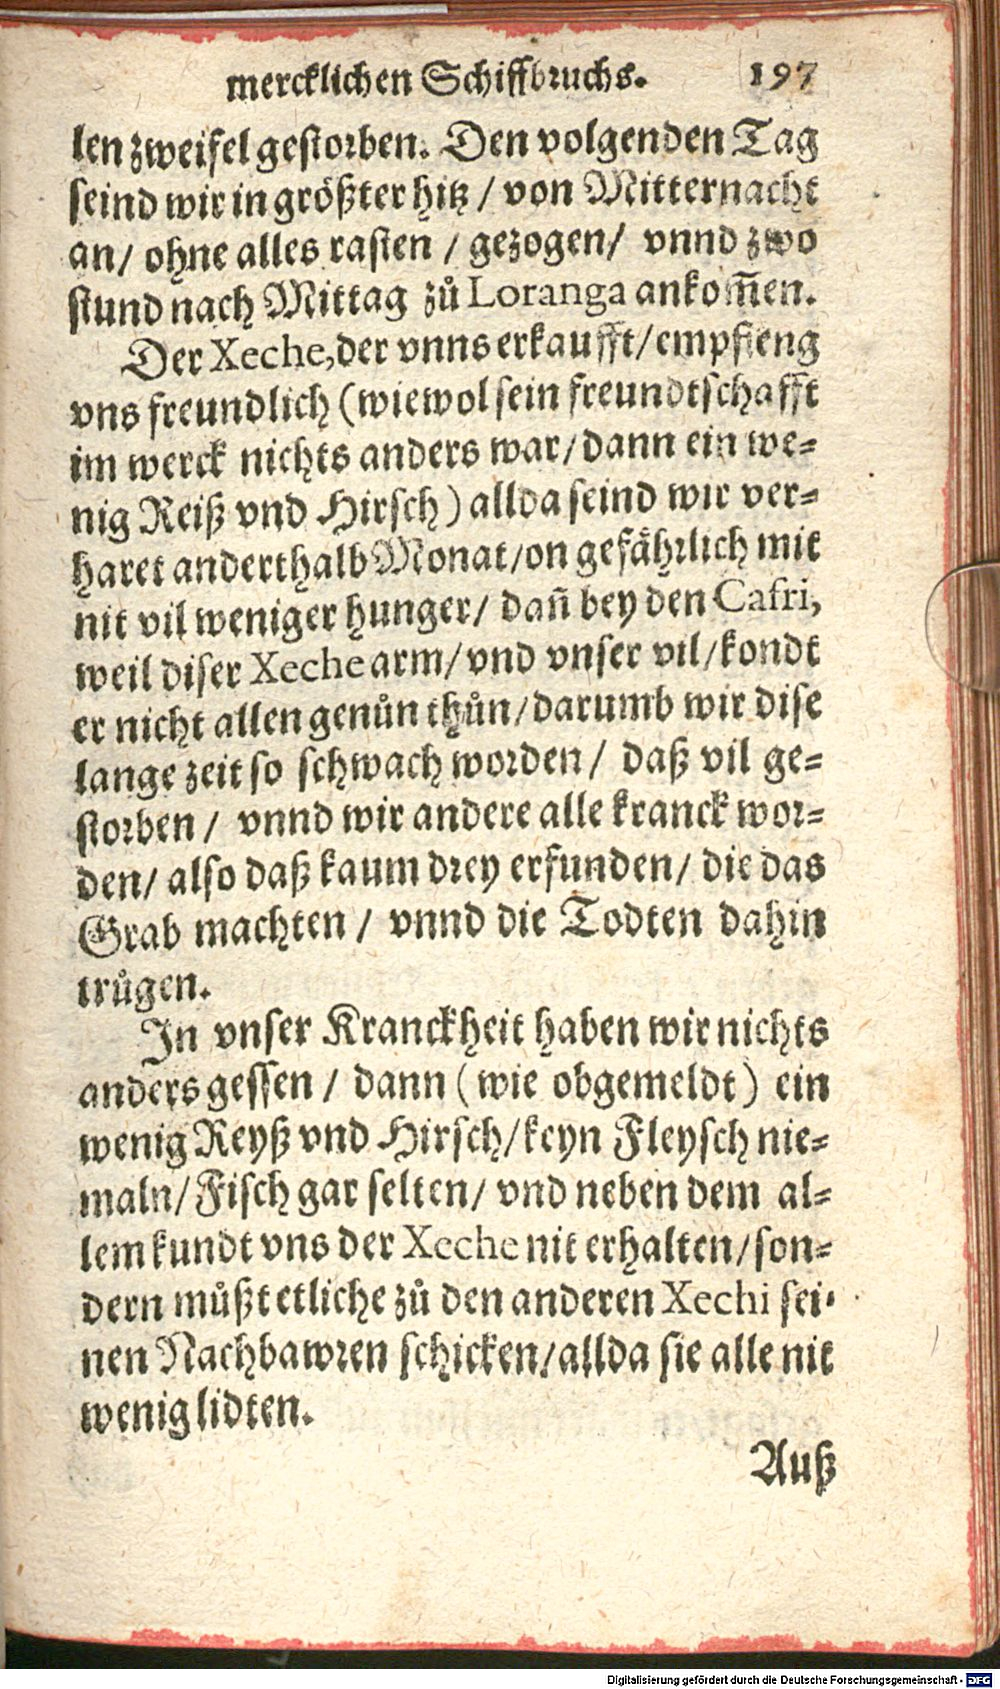 mercklichen Schiffbruchs. 197
len zweifel gestorben. Den volgenden Tag
seind wir in größter hitz / von Mitternacht
an/ ohne alles rasten / gezogen/ vnnd zwo
stund nach Mittag zů Loranga ankom̃en.
Der Xeche, der vnns erkaufft/ empfieng
vns freundlich (wiewol sein freundtschafft
im werck nichts anders war/ dann ein we-
nig Reiß vnd Hirsch) allda seind wir ver-
haret anderthalb Monat/ on gefährlich mit
nit vil weniger hunger/ dañ bey den Cafri,
weil diser Xeche arm/ vnd vnser vil/ kondt
er nicht allen genůn thůn/ darumb wir dise
lange zeit so schwach worden / daß vil ge-
storben / vnnd wir andere alle kranck wor-
den/ also daß kaum drey erfunden/ die das
Grab machten / vnnd die Todten dahin
trůgen.
In vnser Kranckheit haben wir nichts
anders gessen / dann (wie obgemeldt) ein
wenig Reyß vnd Hirsch/ keyn Fleysch nie-
maln/ Fisch gar selten/ vnd neben dem al-
lem kundt vns der Xeche nit erhalten/ son-
dern můßt etliche zů den anderen Xechi sei-
nen Nachbawren schicken/ allda sie alle nit
wenig lidten.
Auß
Digitalisierung gefördert durch die Deutsche Forschungsgemeinschaft - DFG